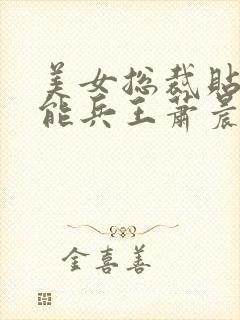 美女总裁贴
能兵王萧晨
金喜善